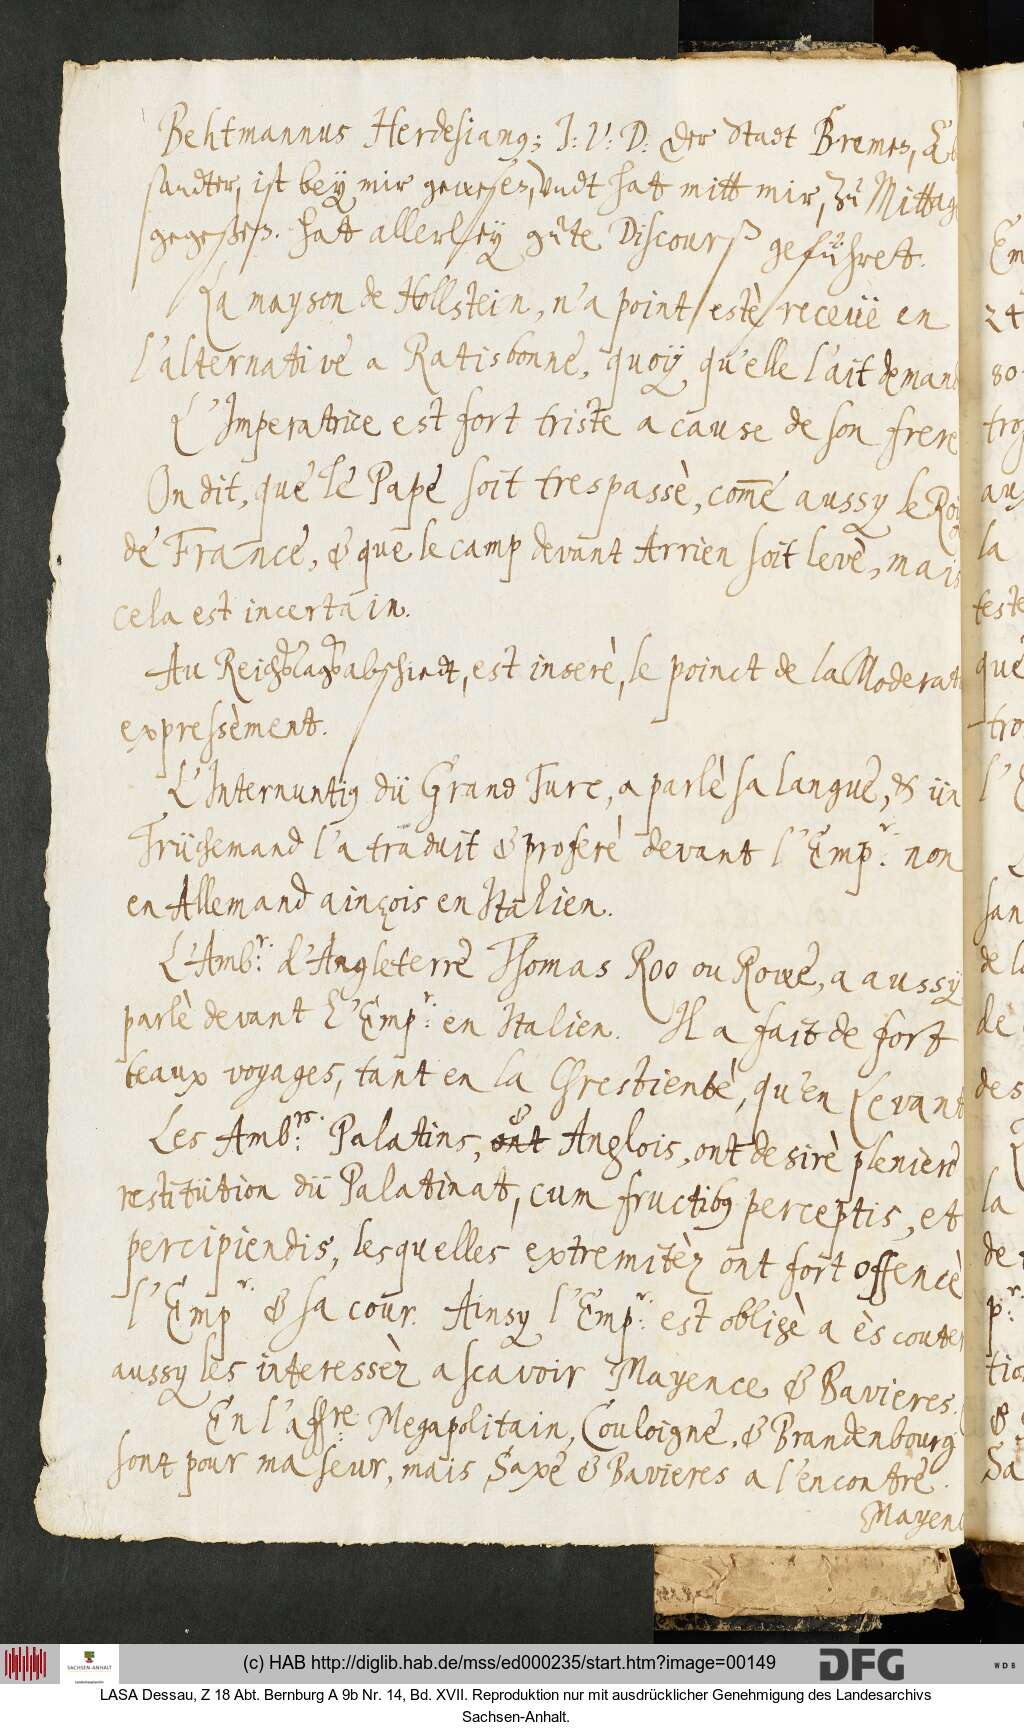 Behtmannus Herdesiang; J: V: D. der Stadt Bremen, Ab
sandter, ist bey mir gewesen, vndt hatt mitt mir, zu Mittage
gegeßen. hatt allerley güte Discourß geführet.
La mayson de Hollstein, n'a point estè receuë en
l'alternative a Ratisbonne, quoÿ qu'elle l'ait deman
L'Imperatrice est fort triste a cause de son frere
On dit, que le Pape soit trespassè, com̄e aussy le Roi
de France, & que le camp devant Arrien soit levè, mais
cela est incertain.
Au Reichßtagßabschiedt, est inserè, le poinct de la Moderati
expressèment.
L'Internuntig dü Grand Turc, a parlè sa langue, & ün
Trüchemand l'a traduit & proferè devant l'Emp:r. non
en Allemand ainçois en Italien.
L'Amb:r. d'Angleterre Thomas Roo ou Rowe, a aussÿ
parlè devant l'Emp:r. en Italien. Il a fait de fort
beaux voyages, tant en la Chrestientè, qu'en Levant
Les Amb:rs. Palatins, & ont Anglois, ont desirè pleniere
restitütion dü Palatinat, cum fructibg perceptis, et
percipiendis, lesquelles extremitèz ont fort offencè
l'Emp:r. & sa cour. Ainsy l'Emp:r. est obligè a èscouter
aussy les interessèz ascavoir Mayence & Bavieres.
En l'aff:re. Megapolitain, Couloigne, & Brandenbourg
sont pour ma seur, mais Saxe & Bavieres a l'encontre.
Mayen
Em
24
80
tro
au
la
teste
que
tro
l'E
san
de la
de
des
la
de
p:r.
tio
&
Sa
SACHSEN-ANHALT
(c) HAB http://diglib.hab.de/mss/ed000235/start.htm?image=00149
DFG
WDB
LASA Dessau, Z 18 Abt. Bernburg A 9b Nr. 14, Bd. XVII. Reproduktion nur mit ausdrücklicher Genehmigung des Landesarchivs
Sachsen-Anhalt.